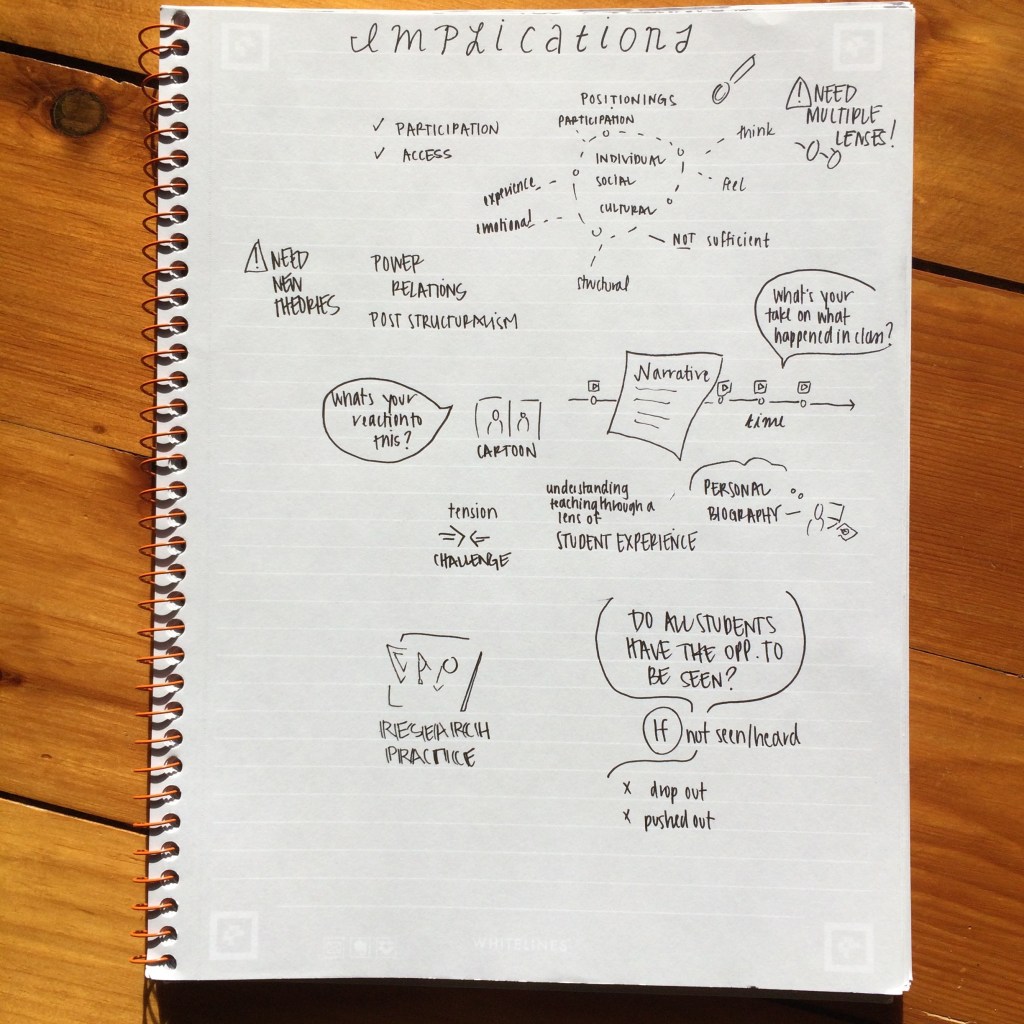 IMPLICATIONS
✓ PARTICIPATION
✓ ACCESS
POSITIONINGS
PARTICIPATION
INDIVIDUAL
SOCIAL
CULTURAL
think
feel
NOT sufficient
experience
emotional
structural
! NEED
MULTIPLE
LENSES!
! NEED
NEW
THEORIES
POWER
RELATIONS
POST STRUCTURALISM
What's your
take on what
happened in class?
Whats your
reaction to
this?
CARTOON
Narrative
time
tension
CHALLENGE
understanding
teaching through a
lens of
STUDENT EXPERIENCE
PERSONAL
BIOGRAPHY
RESEARCH
PRACTICE
DO ALL STUDENTS
HAVE THE OPP. TO
BE SEEN?
If not seen/heard
x drop out
x pushed out
WHITELINES